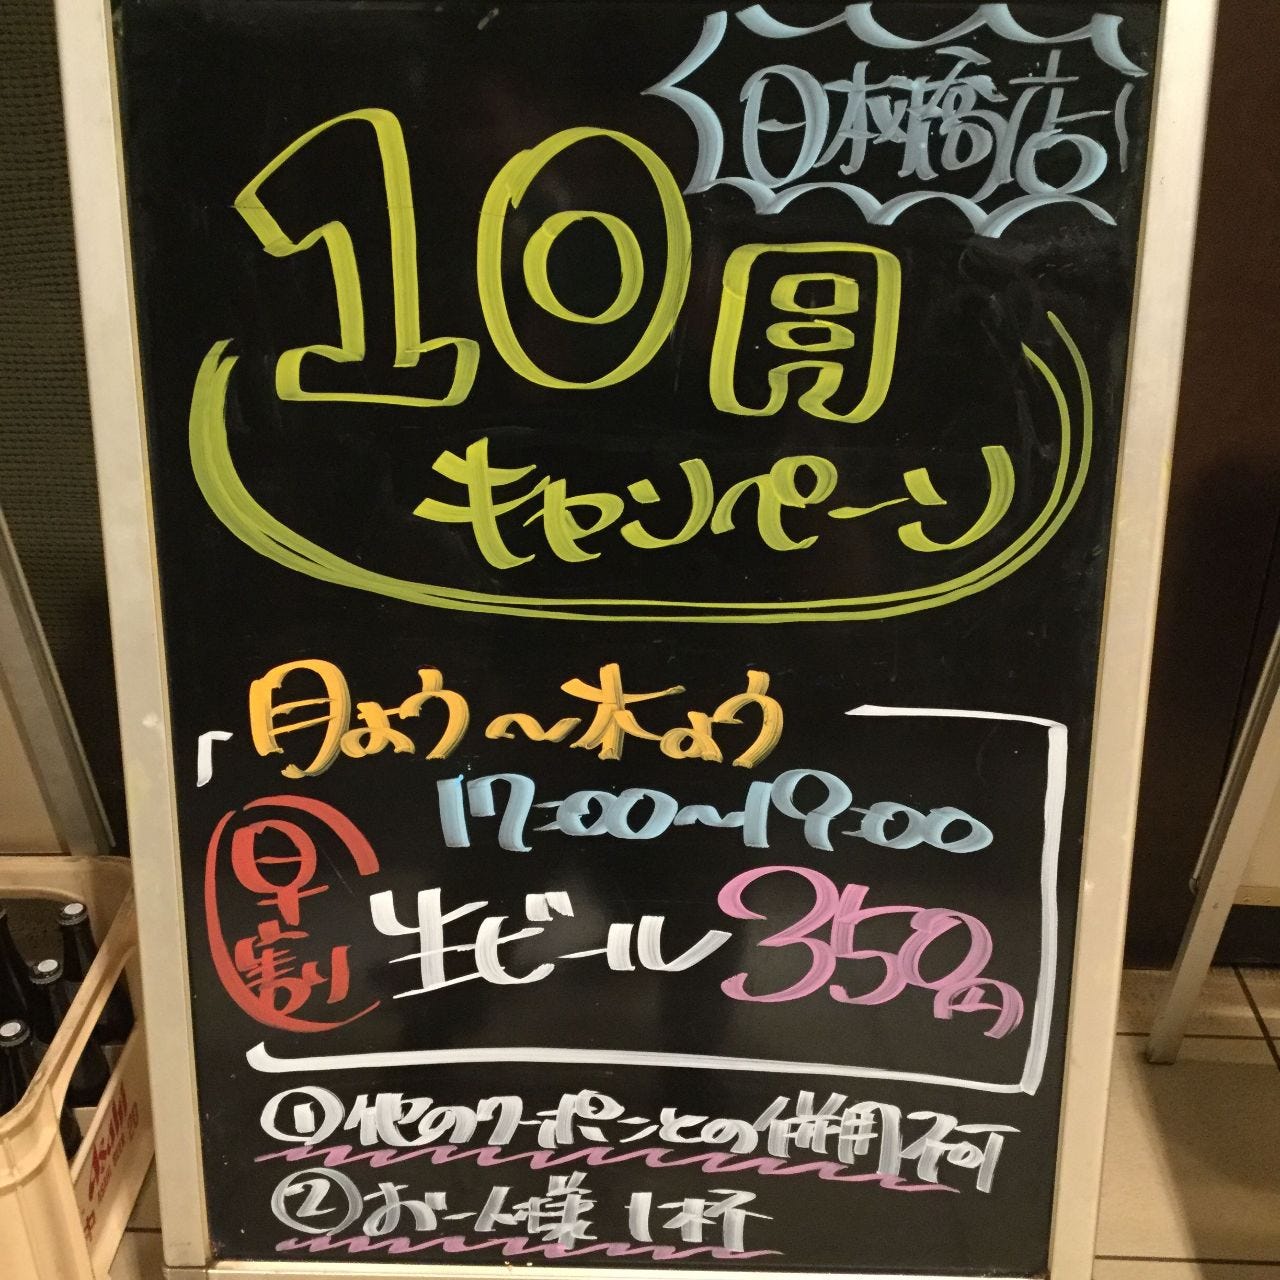 日本橋店
10周
キャンペーン
月よう〜木よう
17:00〜19:00
早割り
生ビール 350円
①他のクーポンとの併用不可
②お一人様1杯
Asahi